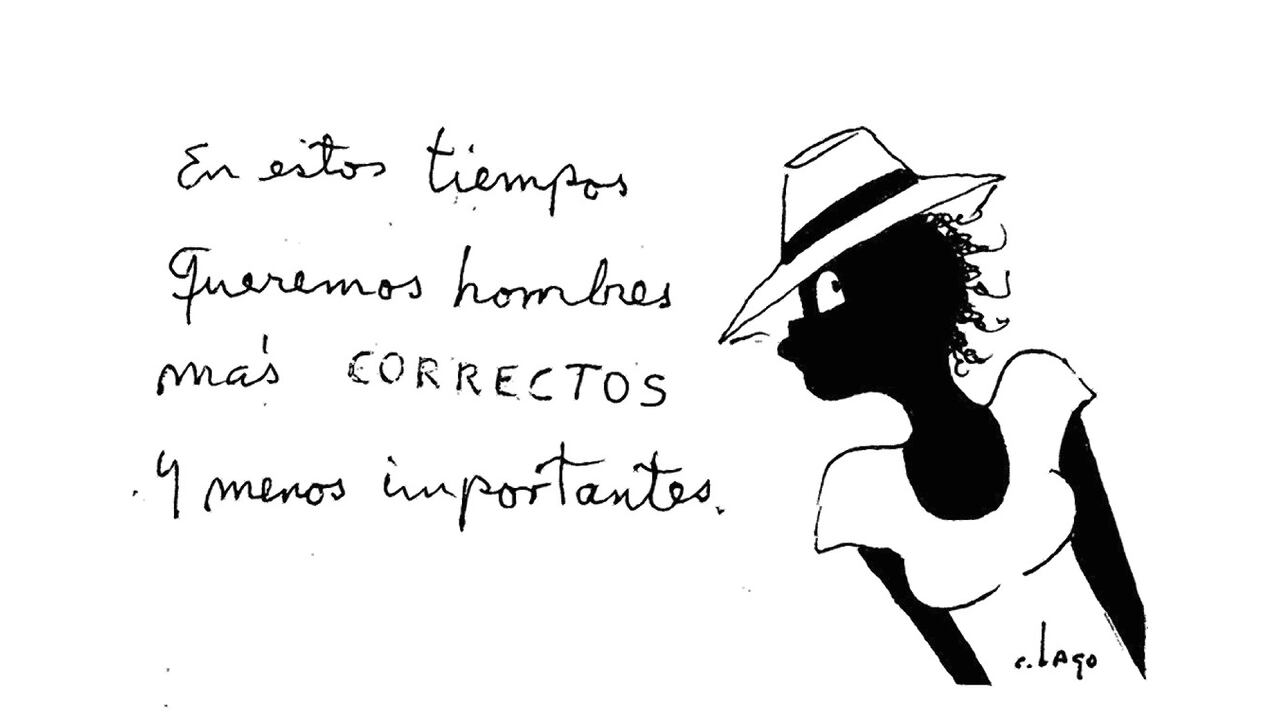 En estos tiempos
Queremos hombres
más CORRECTOS
Y menos importantes.
c. Lago